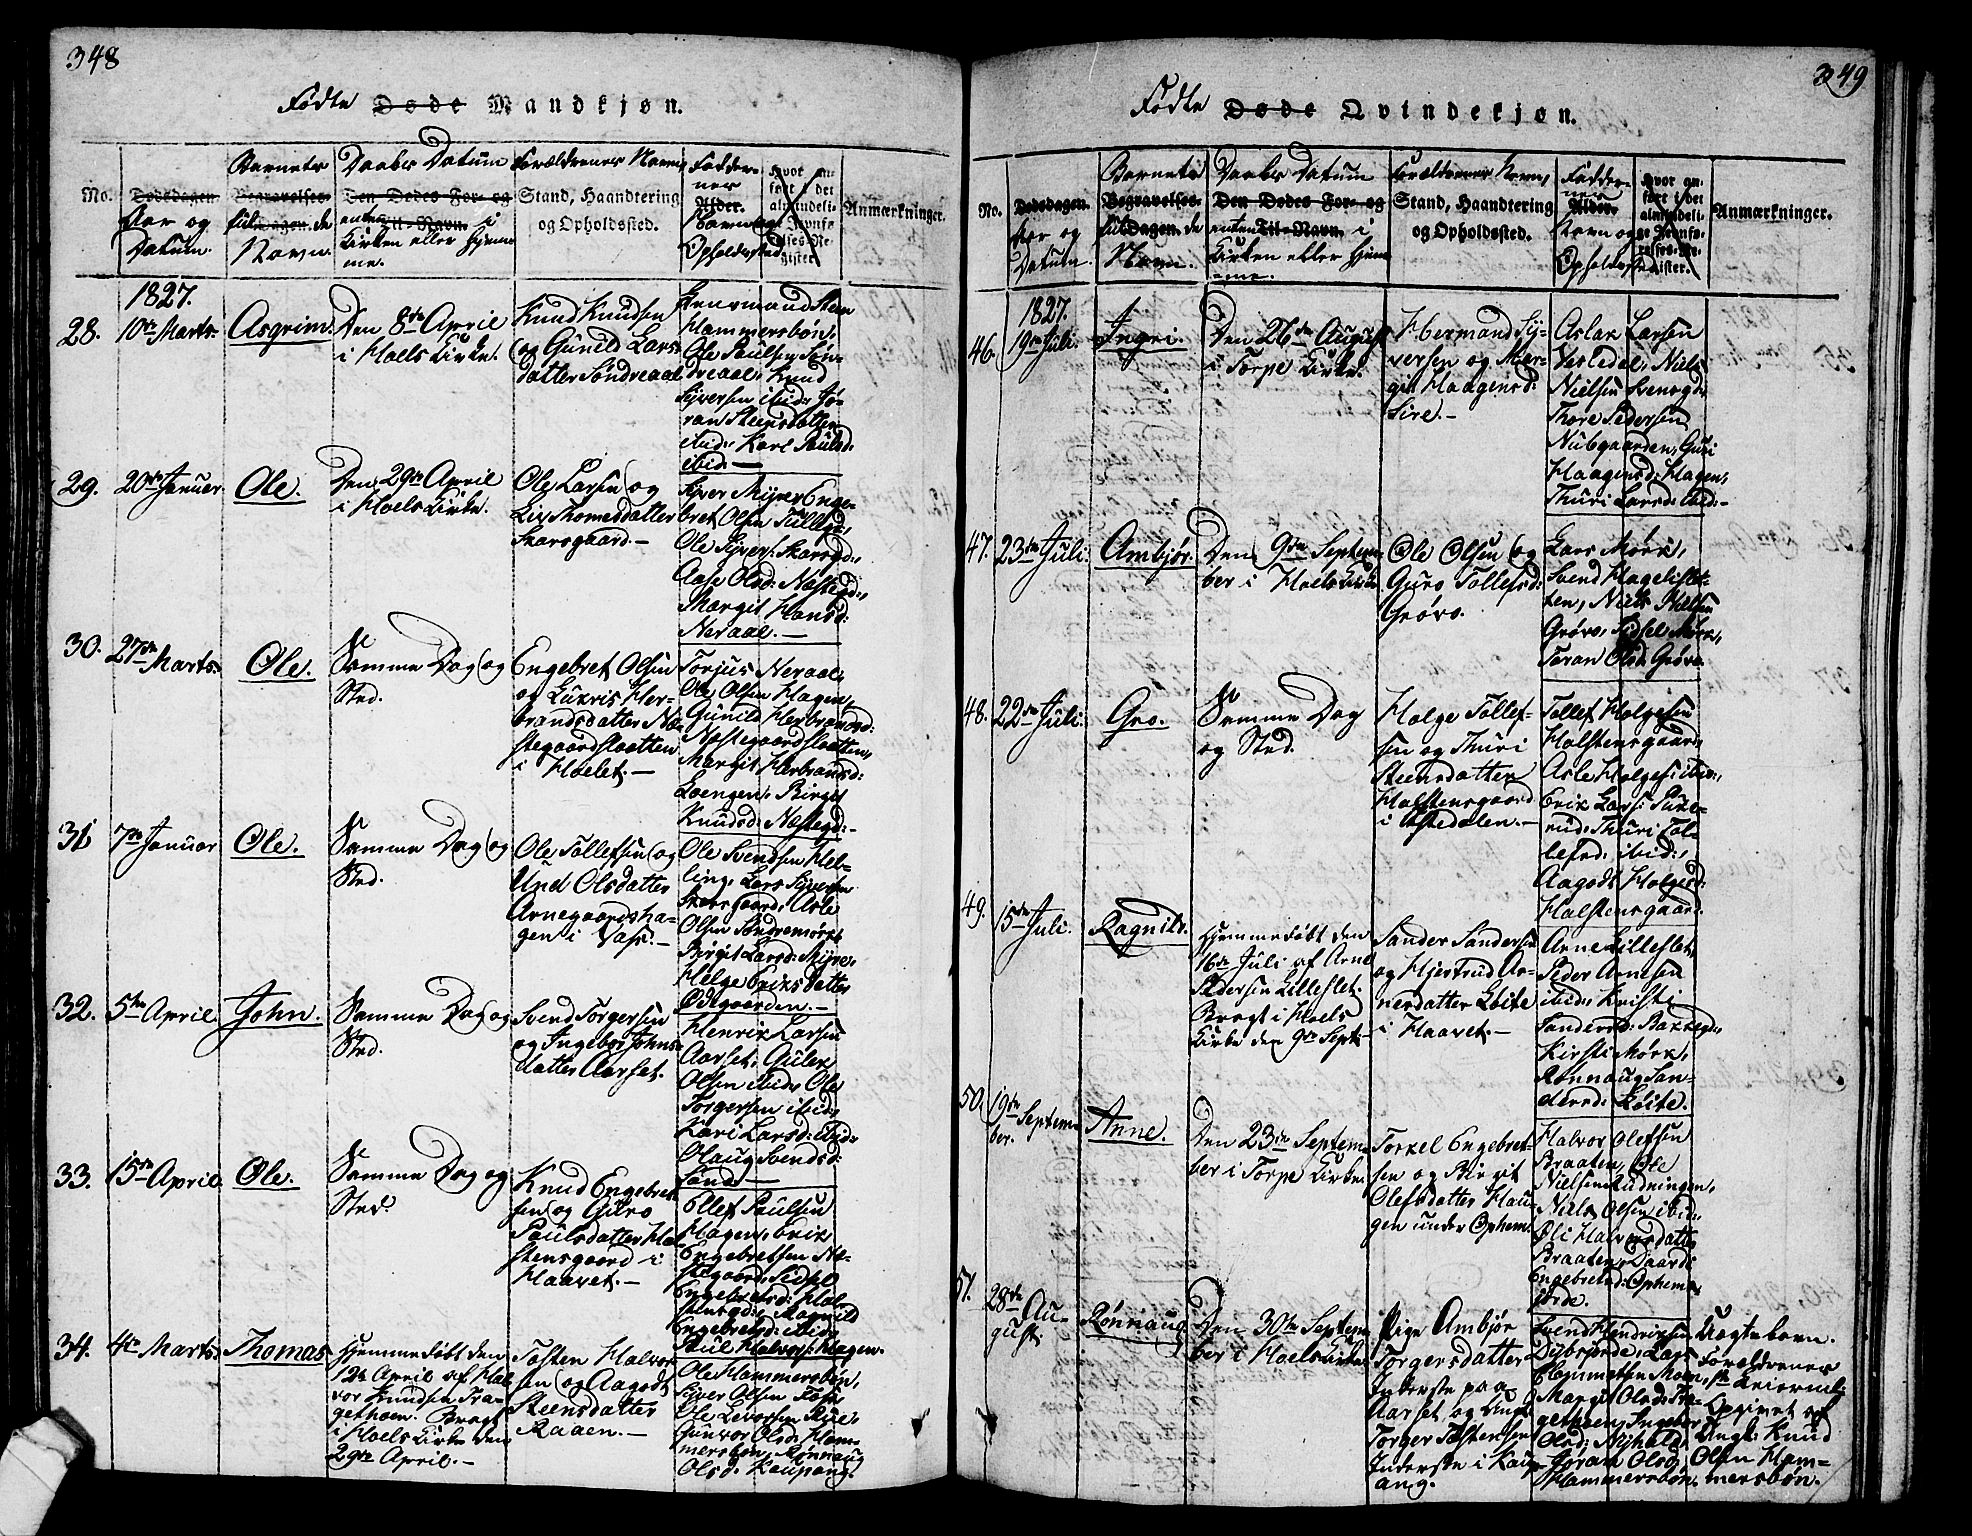 348
Fødte Døde Mandkjøn.
No.
Dødsdagen
Aar og
Datum.
Barnets
Begravelses-
dagen. de
Navn.
Daabs Datum
Den Dødes For- og
enten Til-Navn i
Kirken eller Hjem-
me.
Forældrenes Navn,
Stand, Haandtering
og Opholdssted.
Fadder-
nes
Alder.
Navn og
Opholdssted.
Hvor an-
ført i det
almindeli-
ge Jevnfø-
relses-Re-
gister.
Anmærkninger.
1827.
28.
10de Marts.
Asgrim.
Den 8de April
i Hoels Kirke.
Knud Knudsen
og Gunild Lars-
datter Søndreaal
Hammersbøn,
Ole Paulsen Søn-
dreaal, Knud
Siversen ibid: Jø-
ran Steensdatter
ibid: Kari Paulsd:
ibid: —
29.
20de Januar
Ole.
Den 29de April
i Hoels Kirke.
Ole Larsen og
Liv Thomesdatter
Skarsgaard.—
Siver Myre, Enge-
bret Olsen Tullgd:,
Ole Sivers: Skarsgd:,
Aase Olsd: Næstegd:,
Margit Hansd:
Neraal.—
30.
27de Marts.
Ole.
Samme Dag og
Sted.
Engebret Olsen
og Luxris Her-
brandsdatter Næ-
stegaardslaatten
i Hoelet.—
Torjus Neraal,
Ole Olsen Hagen,
Gunild Herbrandsd:
Næstegaardslaatten,
Margit Herbrandsd:
Loengen, Birgit
Knudsd: Næstegd:—
31
7de Januar
Ole.
Samme Dag og
Sted.
Ole Tollefsen og
Und Olsdatter
Arnegaardsha-
gen i Vass.—
Ole Svendsen Hel-
ling, Lars Siversen
Skarsgaard, Asle
Olsen Søndremørk
Birgit Larsd: Myre,
Helge Eriksdatter
Odtgaarden.—
32.
5te April
John.
Samme Dag og
Sted.
Svend Torgersen
og Ingebor Johns-
datter Aarset.
Henrik Larsen
Aarset, Gulek
Olsen ibid: Ole
Torgersen ibid:
Kari Larsd: ibid:
Olaug Svendsd:
Sand.—
33.
15de April
Ole.
Samme Dag og
Sted.
Knud Engebret-
sen og Guro
Paulsdatter Hal-
stensgaard i
Haavet.—
Ellef Paulsen
Hagen, Erik
Engebretsen Næ-
stegaard, Sidsel
Engebretsd: Hal-
stensgd:, Ragnild
Engebretsd: ibid:
Paul Halvors: Hagen.
34.
4de Marts.
Thomas
Hjemmedøbt den
12te April af Hal-
vor Knudsen Tra-
gethoen. Bragt
i Hoels Kirke den
29de April.—
Tosten Halvor-
sen og Aagodt
Steensdatter
Raaen.—
Ole Hammersbøn,
Siver Olsen
Ole Levorsen Rue,
Gunvor Olsd: Ham-
mersbøn, Rønnaug
Olsd: Kaupang.
349
Fødte Døde Qvindekjøn.
No.
Dødsdagen.
Aar og
Datum.
Barnets
Begravelses-
dagen. de
Navn.
Daabs Datum
Den Dødes For- og
enten Til-Navn i
Kirken eller Hjem-
me.
Forældrenes Navn,
Stand, Haandtering
og Opholdssted.
Fadder-
nes
Alder.
Navn og
Opholdssted
Hvor an-
ført i det
almindeli-
ge Jevnfø-
relses-Re-
gister.
Anmærkninger.
1827.
46.
19de Juli.
Ingri.
Den 26de August
i Torpe Kirke.
Hermand Sy-
versen og Mar-
git Haagensd:
Sire.—
Aslak Larsen
Vesledal, Niels
Nielsen Svensgd:,
Thore Pedersen
Nubgaarden, Guri
Haagensd: Hagen,
Thuri Larsd: ibid:—
47.
23de Juli.
Ambjør.
Den 9de Septem-
ber i Hoels Kirke
Ole Olsen og
Guro Tollefsd:
Grøvo.
Lars Mørk,
Svend Hageslet-
ten, Niels Nielsen
Grøvo, Sidsel Mørk,
Jøran Olsd: Grøvo.
48.
22de Juli.
Gro.
Samme Dag
og Sted.
Holge Tollef-
sen og Thuri
Steensdatter
Halstensgaard
i Votedalen.—
Tollef Holgesen
Halstensgaard,
Asle Holges: ibid:,
Erik Lars:
rud, Thuri Tol-
lefsd: ibid:,
Aagodt Holgesd:
Halstensgaard.
49.
15de Juli.
Ragnild.
Hjemmedøbt den
16de Juli af Arne
Pedersen Lilleslet.
Bragt i Hoels
Kirke den 9de Sept:
Sander Sandersen
og Hjertrud Ar-
nesdatter Loite
i Haavet.—
Arne Lilleslet,
Peder Arnesen
ibid: Kristi
Sandersd: Bakkegd:,
Kirsti Mørk,
Rønnaug San-
dersd: Loite.
50.
19de Septem-
ber.
Anne.
Den 23de Septem-
ber i Torpe Kirke.
Torkel Engebret-
sen og Birgit
Olefsdatter Hau-
gen under Ophem.
Halvor Olefsen
Braaten, Ole
Nielsen Rudningen,
Niels Olsen ibid:
Oli Halvorsdatter
Braaten,
Engebretsd: Ophems-
jorde.
51.
28de Au-
gust
Rønnaug
Den 30te Septem-
ber i Hoels Kirke
Pige Ambjør
Torgersdatter
Inderste paa
Aarset og Ungk:
Torger Tostensen
Inderste i Kaup-
ang.
Svend Hendriksen
Dybsjorde, Lars
Clemmetsen Moen,
Margit Olsd: Tra-
gethoen, Ingebor
Olsd: Nyhald,
Jøran Olsd:
Hammersbøn.
Uægte barn.
Forældrenes
Opgivet af
Ungk: Knud
Olsen Ham-
mersbøn.